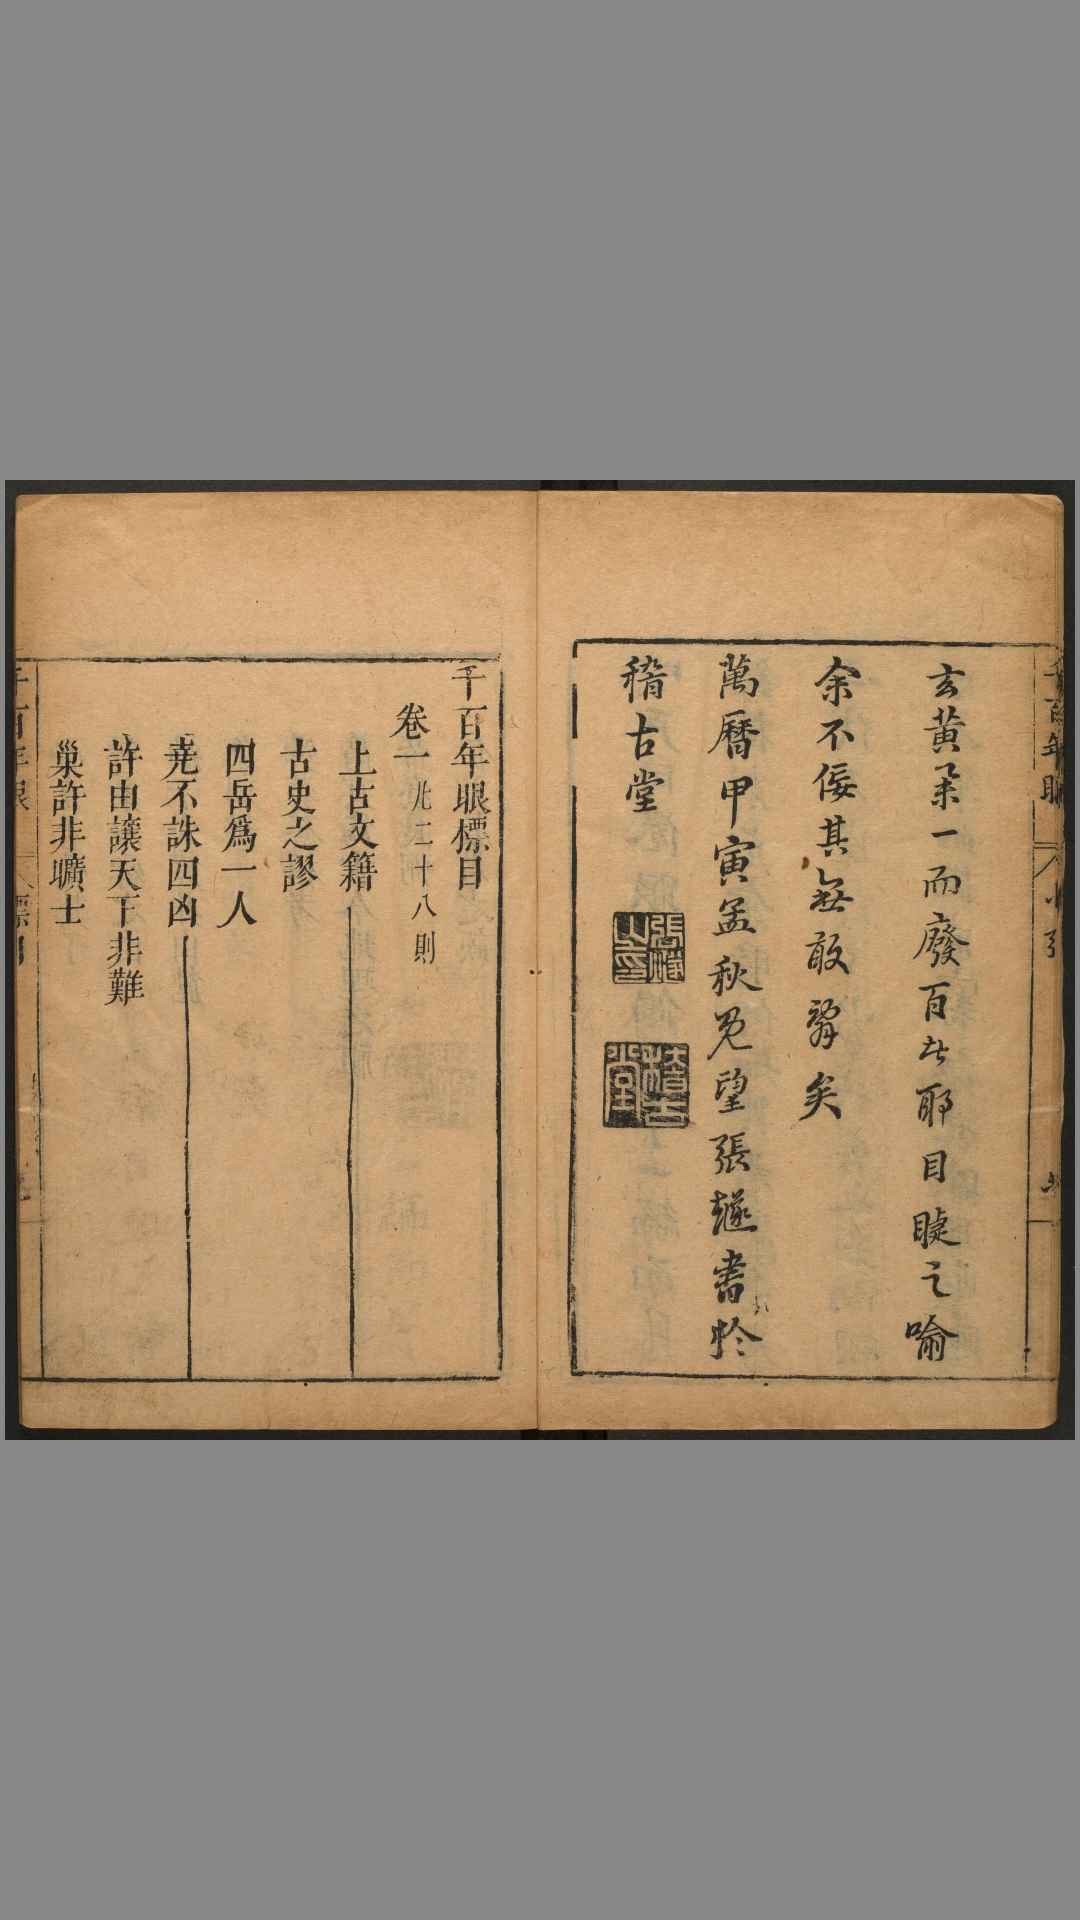 玄黃舉一而廢百者耶目睫之喻
余不佞其無敢辭矣
萬曆甲寅孟秋旣望張燧書於
稽古堂
張燧之印
稽古堂
千百年眼 小引
千百年眼標目
卷一 凡二十八則
上古文籍
古史之謬
四岳爲一人
堯不誅四凶
許由讓天下非難
巢許非曠士
千百年眼 標目